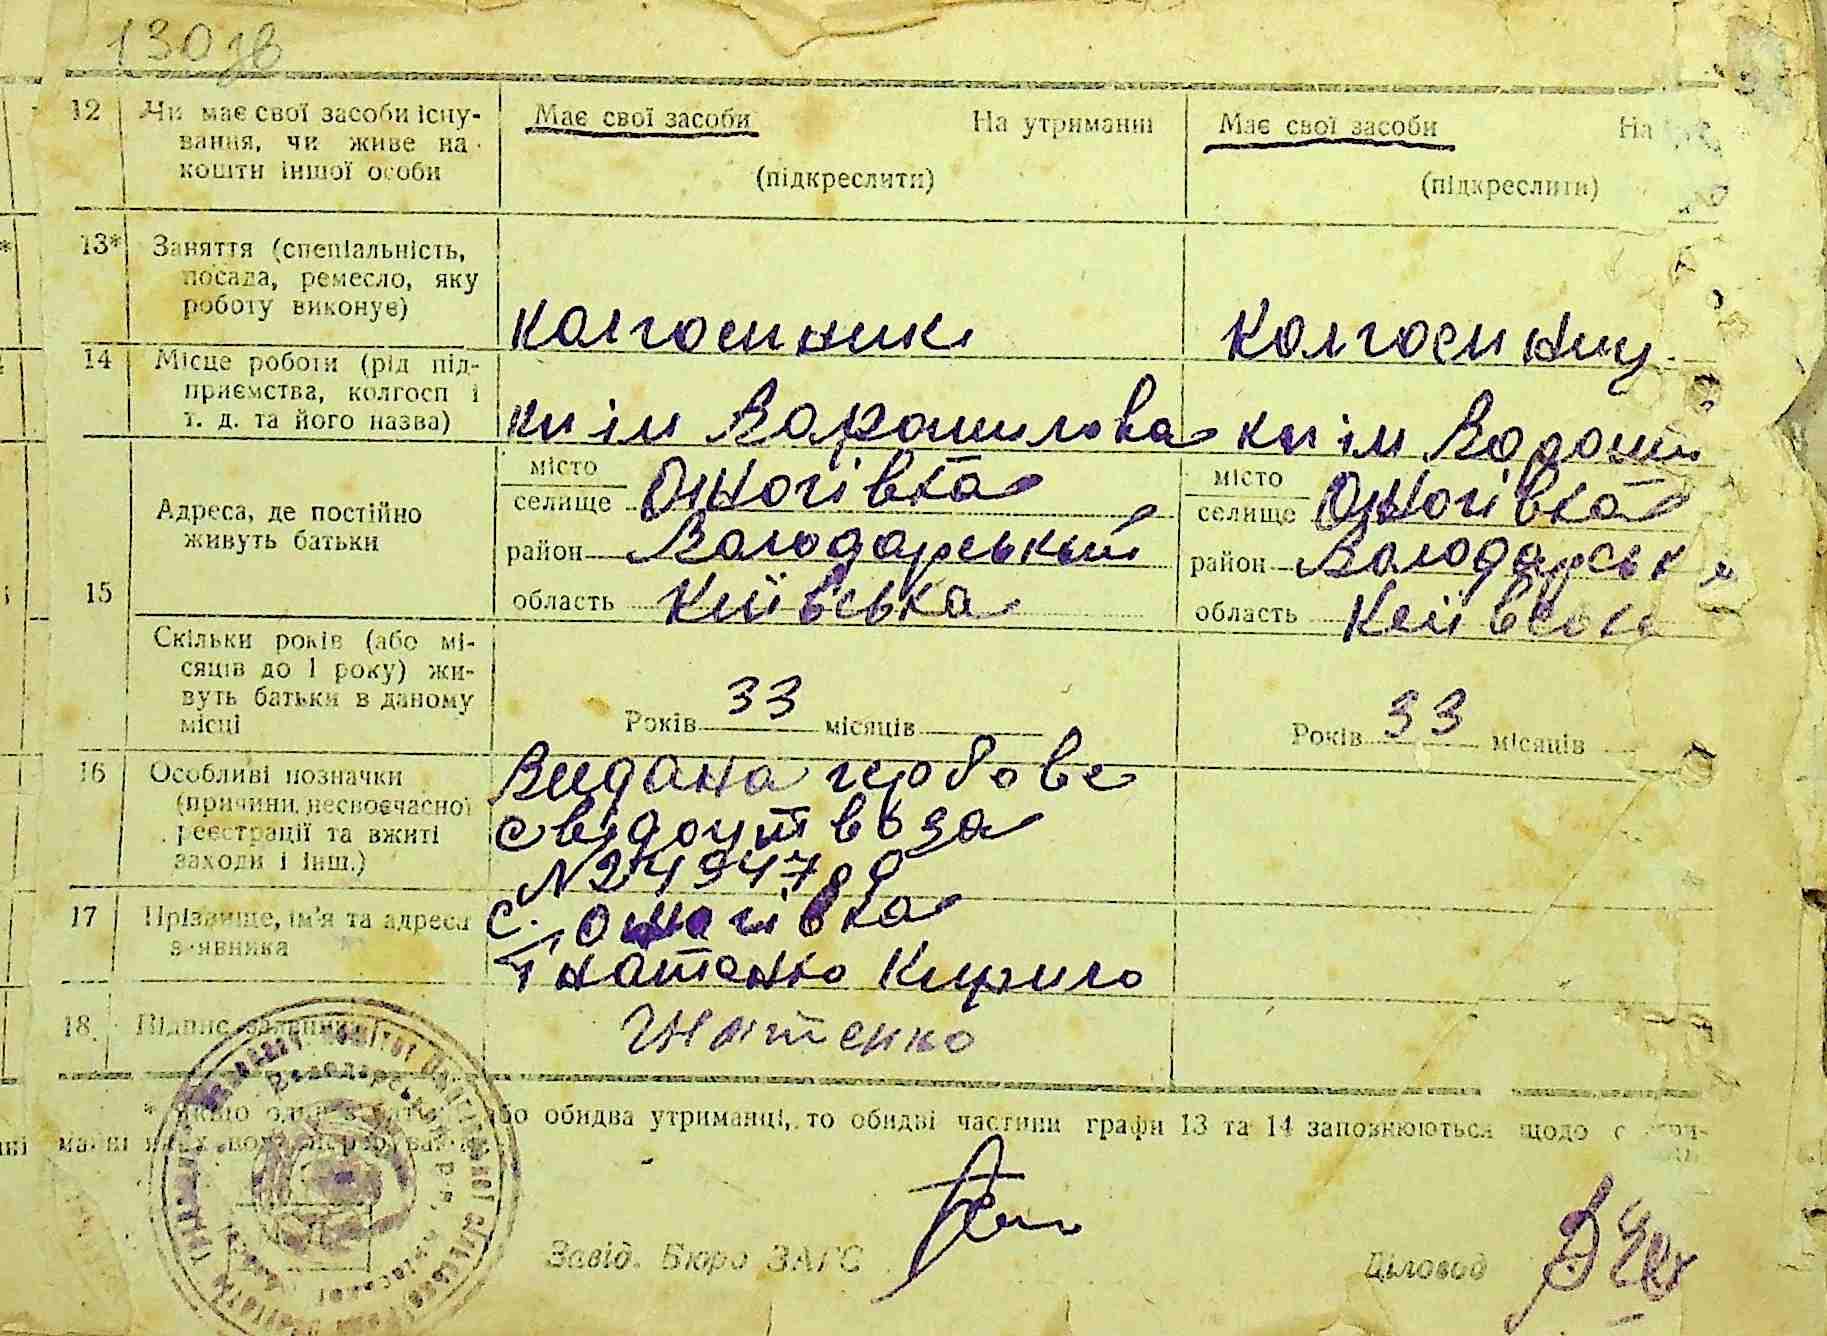 130зв
12 Чи має свої засоби існу- Має свої засоби На утриманні Має свої засоби На
вання, чи живе на
кошти іншої особи (підкреслити) (підкреслити)
13* Заняття (спеціальність,
посада, ремесло, яку
роботу виконує) колгоспник колгоспниц
14 Місце роботи (рід під-
приємства, колгосп і
т. д. та його назва) кп ім Ворошилова кп ім Ворош
місто місто
селище Ожогівка селище Ожогівка
Адреса, де постійно
живуть батьки район Володарський район Володарськ
15 область Київська область Київськ
Скільки років (або мі-
сяців до 1 року) жи-
вуть батьки в даному
місці Років 33 місяців Років 33 місяців
16 Особливі позначки Видана гербове
(причини несвоєчасної
реєстрації та вжиті свідоцтво за
заходи і інш.) №
17 Прізвище, ім'я та адреса с. Ожогівка
заявника Гнатенко Кирило
18. Підпис заявника Гнатенко
або обидва утриманці, то обидві частини графи 13 та 14 заповнюються щодо
Завід. Бюро ЗАГС Діловод